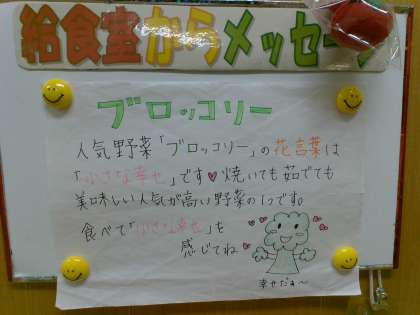 給食室からメッセージ
ブロッコリー
人気野菜「ブロッコリー」の花言葉は
「小さな幸せ」です♥焼いても茹でても
美味しい人気が高い野菜の1つです。
食べて「小さな幸せ」を
感じてね♥
幸せだぁ〜